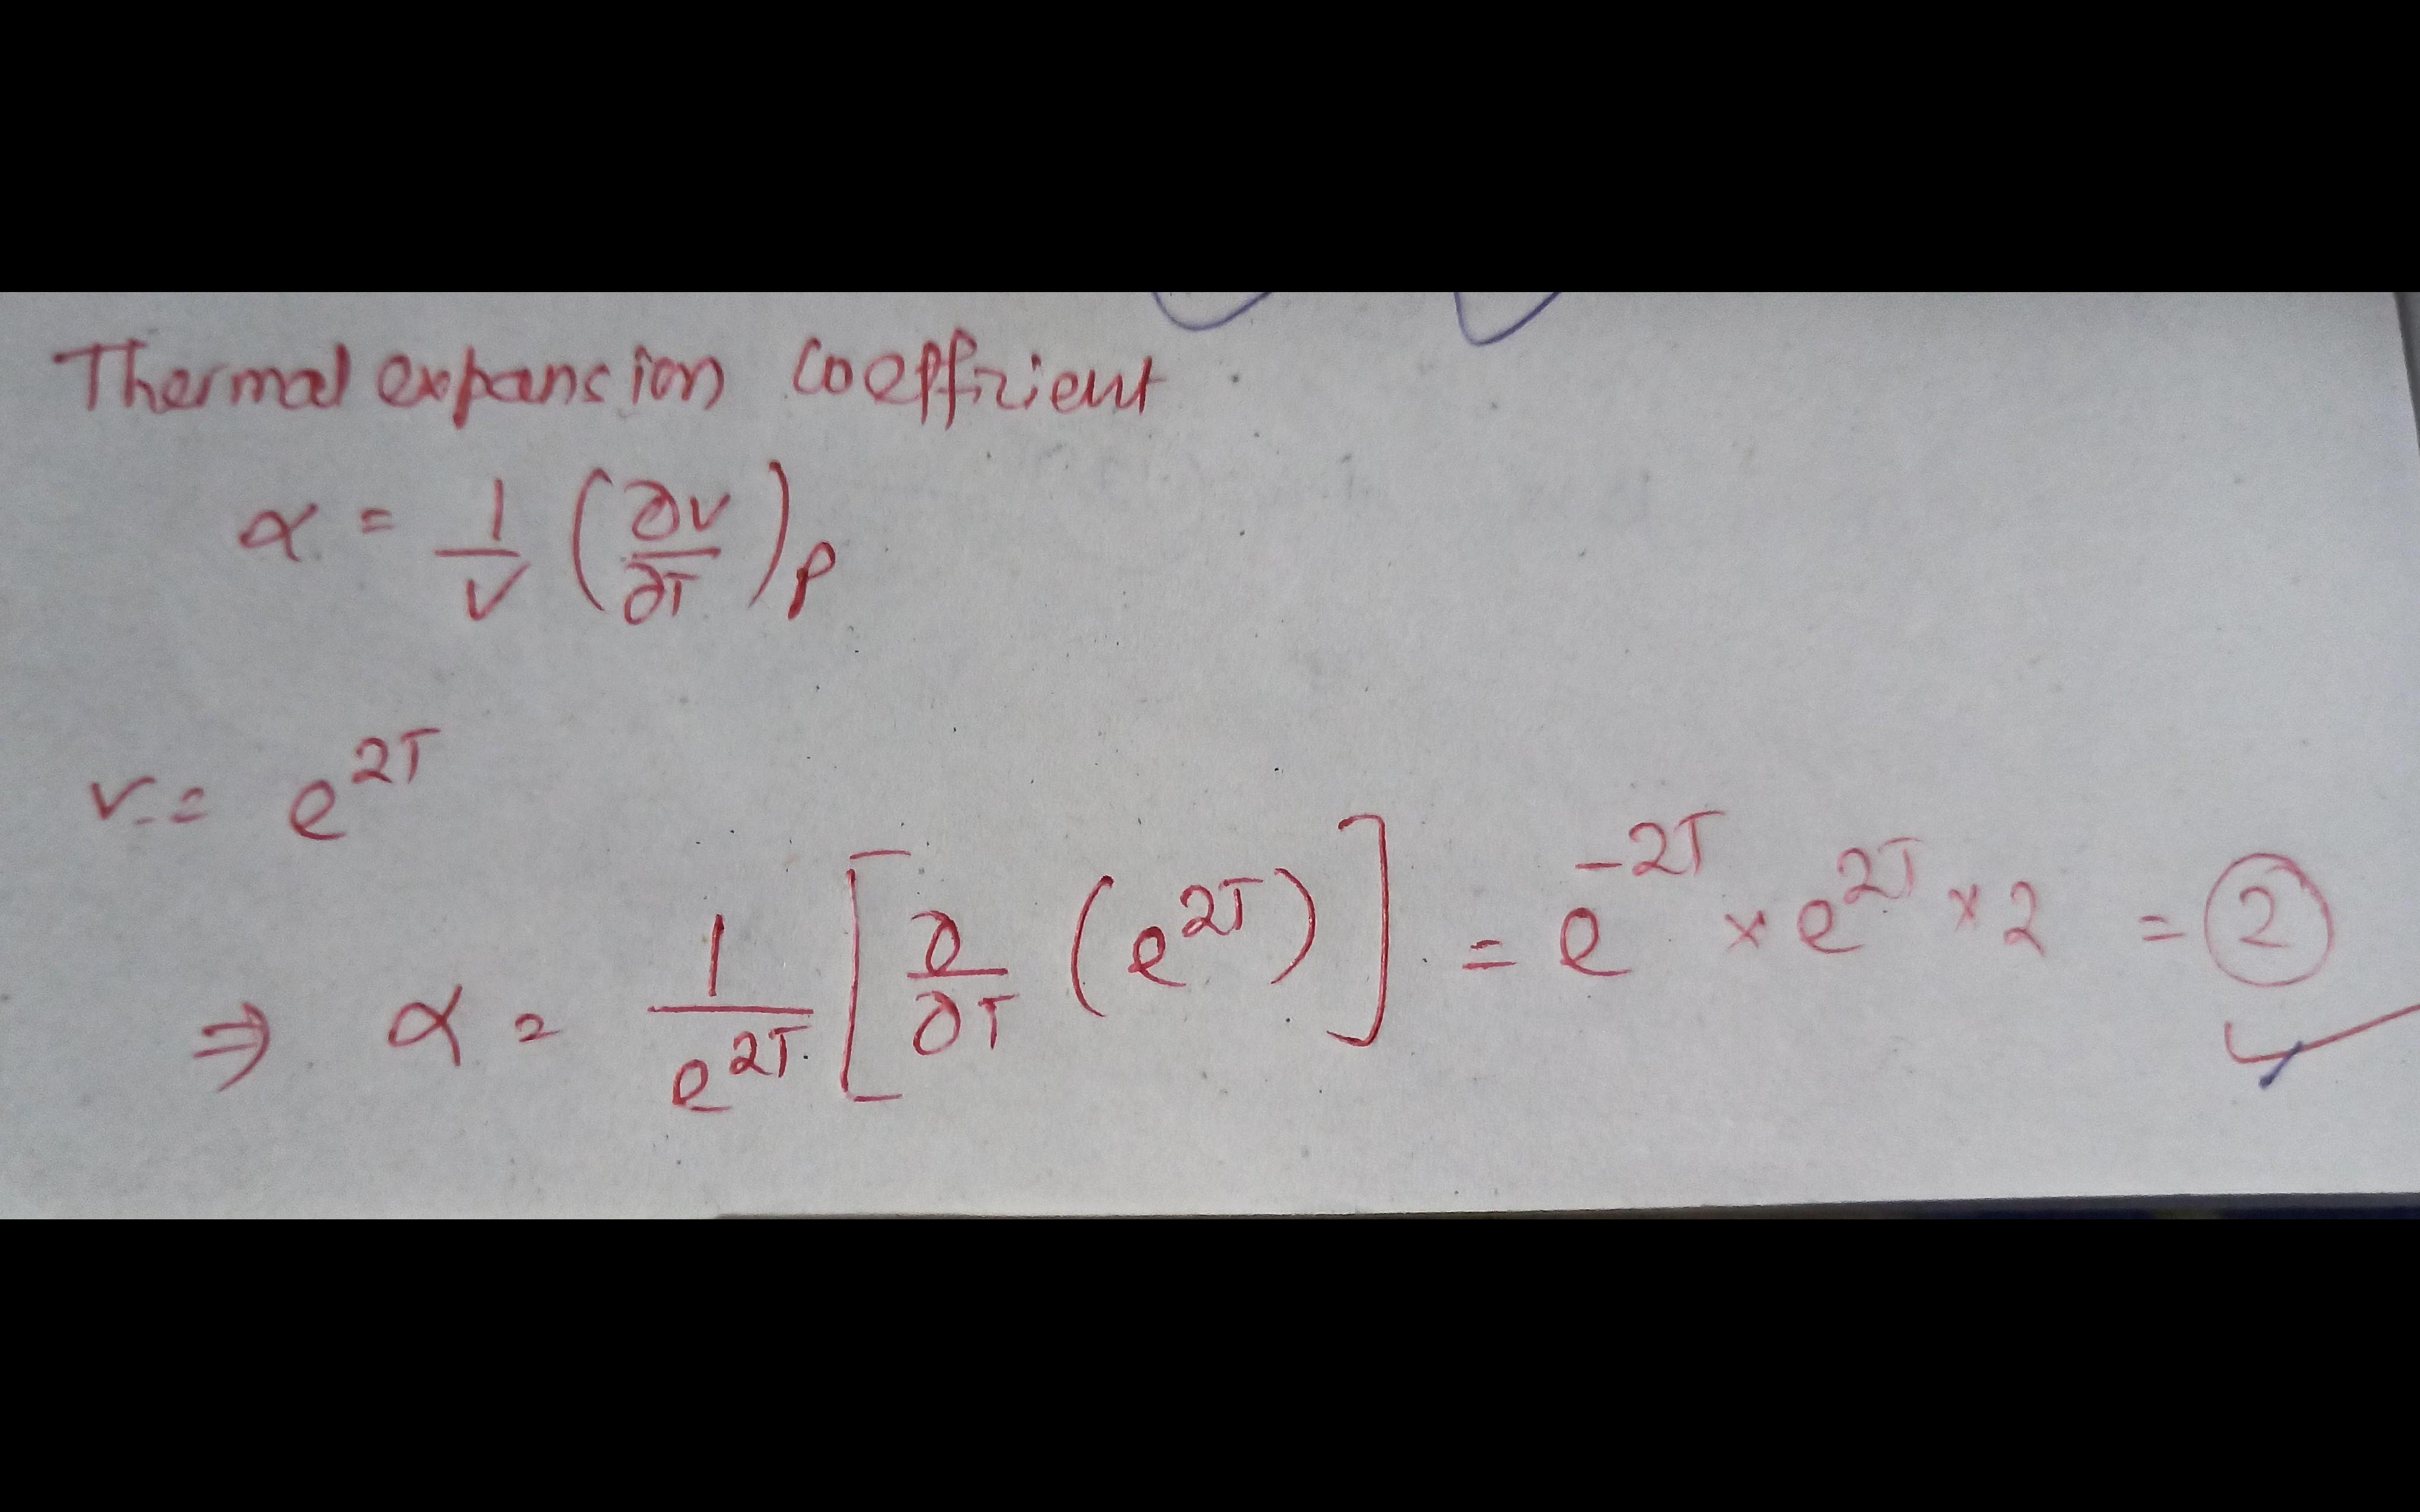 Thermal expansion coefficient
α = 1/V (∂V/∂T)P
V = e^2T
⇒ α = 1/e^2T [∂/∂T (e^2T)] = e^-2T × e^2T × 2 = 2